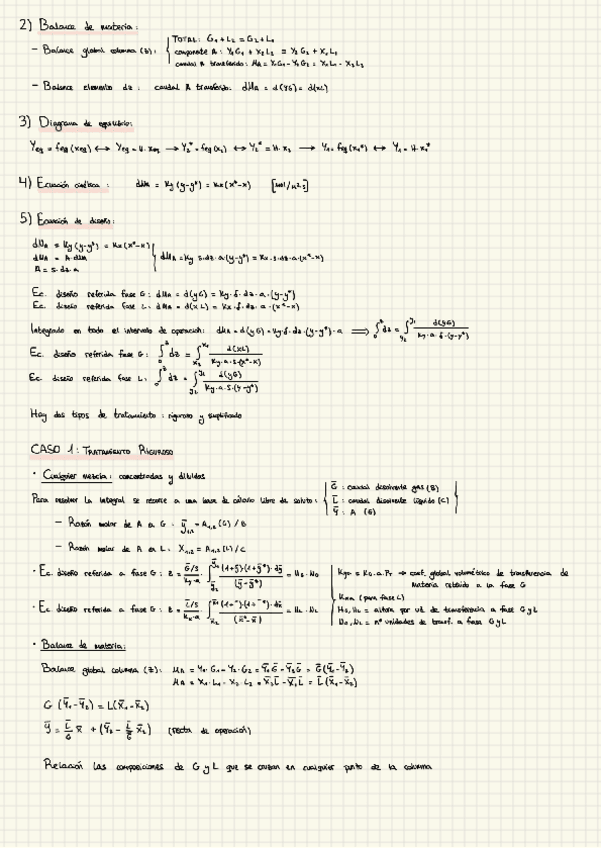 2) Balance de materia:
– Balance global columna (z): TOTAL: G₁ + L₂ = G₂ + L₁
componente A: Y₁G₁ + X₂L₂ = Y₂G₂ + X₁L₁
caudal A transferido: MA = Y₁G₁ - Y₂G₂ = X₁L₁ - X₂L₂
– Balance elemento dz: caudal A transferido: dMA = d(yG) = d(xL)
3) Diagrama de equilibrio:
Yeq = feq(xeq) ↔ Yeq = H·xeq → Y₂* = feq(x₂) ↔ Y₂* = H·x₂ → Y₁ = feq(x₁*) ↔ Y₁ = H·x₁*
4) Ecuación cinética: dNA = Ky(y-y*) = Kx(x*-x) [mol/m²s]
5) Ecuación de diseño:
dNA = Ky(y-y*) = Kx(x*-x)
dMA = A·dNA
A = S·dz·a
dMA = Ky·S·dz·a·(y-y*) = Kx·S·dz·a·(x*-x)
Ec. diseño referida fase G: dMA = d(yG) = Ky·S·dz·a·(y-y*)
Ec. diseño referida fase L: dMA = d(xL) = Kx·S·dz·a·(x*-x)
Integrado en todo el intervalo de operación: dMA = d(yG) = Ky·S·dz·(y-y*)·a ⟹ ∫₀ᶻ dz = ∫y₂^y₁ d(yG) / Ky·a·S·(y-y*)
Ec. diseño referida fase G: ∫₀ᶻ dz = ∫x₂^x₁ d(xL) / Ky·a·S·(x*-x)
Ec. diseño referida fase L: ∫₀ᶻ dz = ∫y₂^y₁ d(yG) / Ky·a·S·(y-y*)
Hay dos tipos de tratamiento: riguroso y simplificado
CASO 1: TRATAMIENTO RIGUROSO
· Cualquier mezcla: concentradas y diluidas
Para resolver la integral se recurre a una base de cálculo libre de soluto:
G̅: caudal disolvente gas (B)
L̅: caudal disolvente líquido (C)
Y̅: A (G)
– Razón molar de A en G: y̅₁,₂ = A₁,₂(G)/B
– Razón molar de A en L: X₁,₂ = A₁,₂(L)/C
· Ec. diseño referida a fase G: z = G̅/S / Ky·a · ∫y̅₂^y̅₁ (1+y̅)·(1+y̅*)·dy̅ / (y̅-y̅*) = HG·NG
· Ec. diseño referida a fase L: z = L̅/S / Kx·a
coef. global volumétrico de transferencia de
materia referido a la fase G
(para fase L)
altura por ud. de transferencia a fase G y L
nº unidades de transf. a fase G y L
· Balance de materia:
Balance global columna (z): MA = Y₁·G₁ - Y₂·G₂ = Y̅₁G̅ - Y̅₂G̅ = G̅(Y̅₁-Y̅₂)
MA = X₁·L₁ - X₂·L₂ = X̅₁L̅ - X̅₂L̅ = L̅(X̅₁-X̅₂)
G(Y̅₁-Y̅₂) = L(X̅₁-X̅₂)
y̅ = L̅/G̅ x̅ + (Y̅₂ - L̅/G̅ X̅₂) (recta de operación)
Relación las composiciones de G y L que se cruzan en cualquier punto de la columna